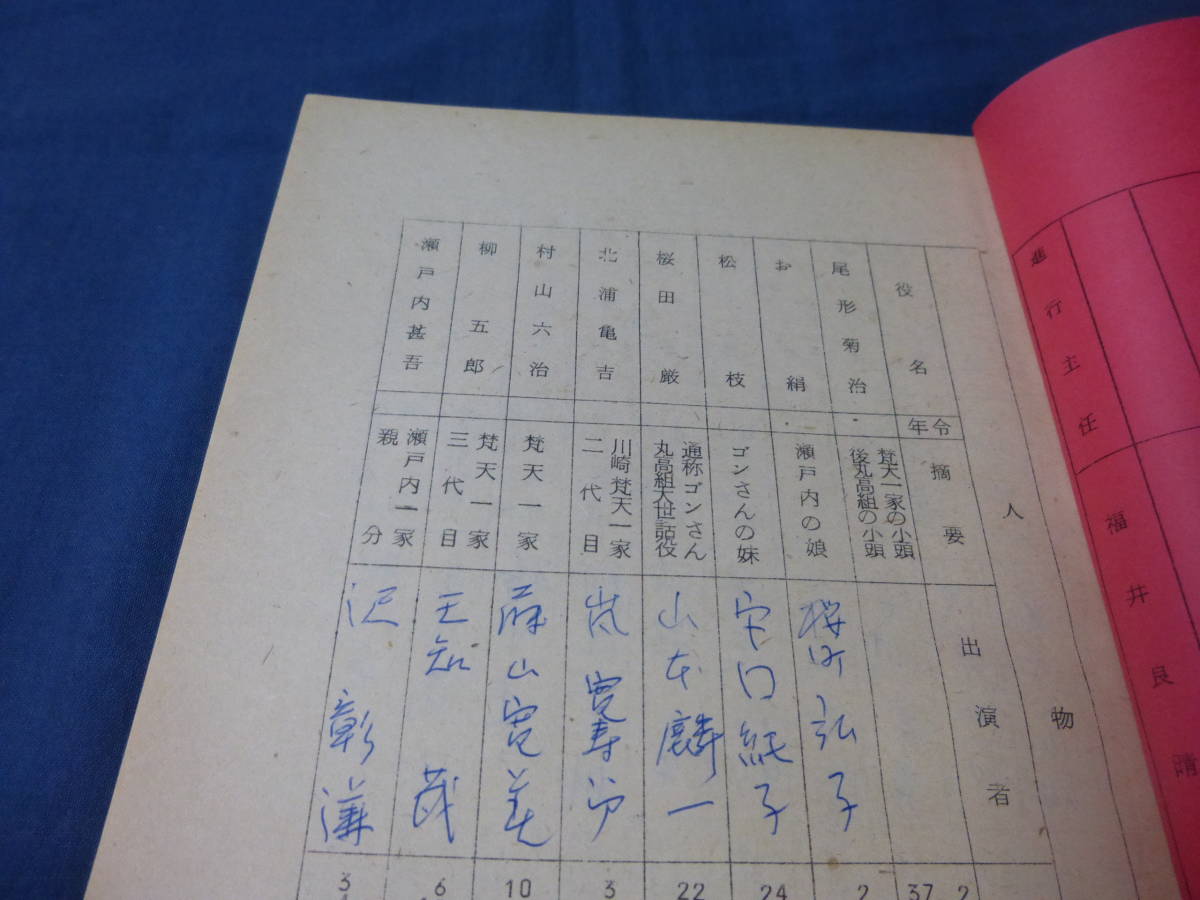 進行主任 福井良晴
人物
役名 年令 摘要 出演者
尾形菊治 梵天一家の小頭 後丸高組の小頭
お絹 瀬戸内の娘 桜町弘子
松枝 ゴンさんの妹 宮口紀子
桜田巌 通称ゴンさん 丸高組大世話役 山本麟一
北浦亀吉 川崎梵天一家 二代目 嵐寛寿郎
村山六治 梵天一家 藤山寛美
柳五郎 梵天一家 三代目 天知茂
瀬戸内甚吾 瀬戸内一家 親分 沢彰謙
3 6 10 3 22 24 2 37 2